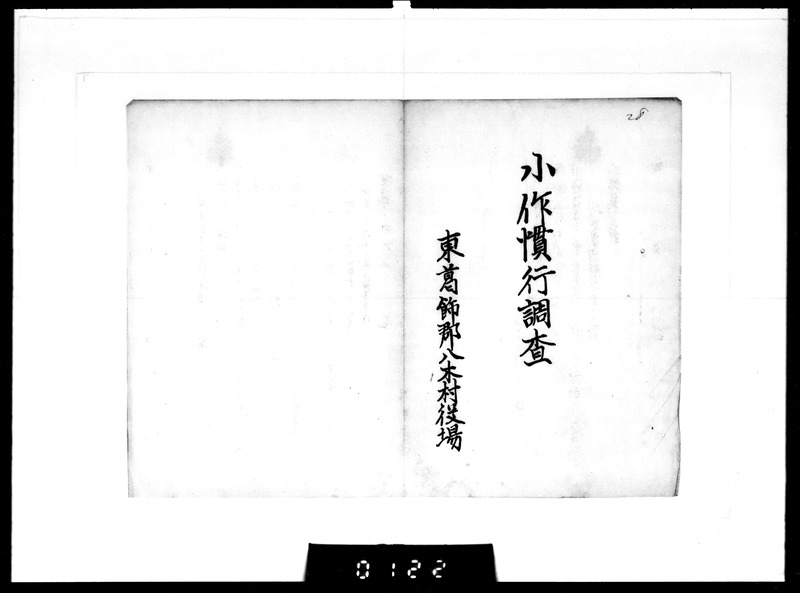 28
小作慣行調査
東葛飾郡八木村役場
0122